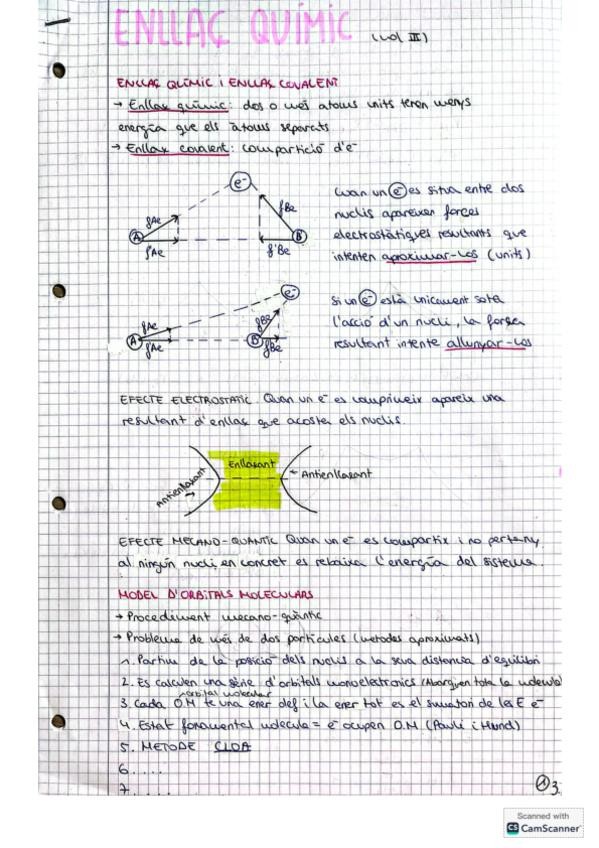 ENLLAÇ QUÍMIC (vol III)
ENLLAÇ QUÍMIC I ENLLAÇ COVALENT
→ Enllaç químic: dos o més àtoms units tenen menys
energia que els àtoms separats
→ Enllaç covalent: compartició d'e⁻
e⁻
fAe
fBe
A
B
f'Ae
f'Be
Quan un e⁻ es situa entre dos
nuclis apareixen forces
electrostàtiques resultants que
intenten aproximar-los (units)
e⁻
fAe
fBe
A
B
f'Ae
f'Be
Si un e⁻ està unicament sota
l'acció d'un nucli, la força
resultant intente allunyar-los
EFECTE ELECTROSTATIC. Quan un e⁻ es comprimeix apareix una
resultant d'enllaç que acosta els nuclis.
Enllaxant
Antienllaxant
← Antienllaxant
EFECTE MECANO-QUANTIC Quan un e⁻ es compartix i no pertany
al ningún nucli en concret es rebaixa l'energia del sistema.
MODEL D'ORBITALS MOLECULARS
→ Procediment mecano-quàntic
→ Problema de més de dos partícules (metodes aproximats)
1. Partim de la posició dels nuclis a la seua distancia d'equilibri
2. Es calculen una sèrie d'orbitals monoelectronics (Abarquen tota la molecula)
orbital molecular
3. Cada O.M te una ener def i la ener tot es el sumatori de les E e⁻
4. Estat fonamental molecula = e⁻ ocupen O.M (Pauli i Hund)
5. METODE CLOA
6. ....
7. ....
1 3
Scanned with
CS CamScanner